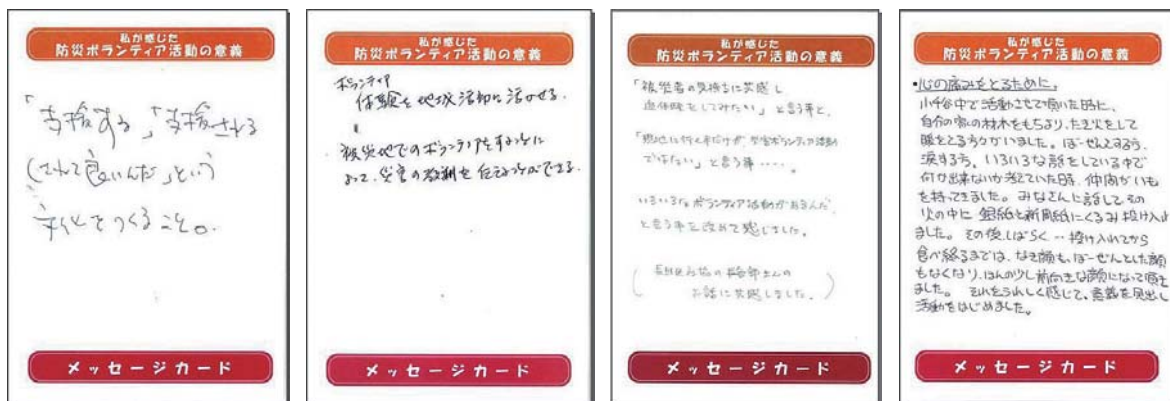 私が感じた
防災ボランティア活動の意義
「支援する」「支援される
(されて良いんだ」という
文化をつくること。
メッセージカード
私が感じた
防災ボランティア活動の意義
ボランティア
体験を地域活動に活かせる。
被災地でのボランティアをすることに
よって、災害の教訓を伝えることができる。
メッセージカード
私が感じた
防災ボランティア活動の意義
「被災者の気持ちに共感し
追体験をしてみたい」と言う事と、
「現地に行く事だけが、災害ボランティア活動
ではない」と言う事‥‥。
いろいろなボランティア活動があるんだ、
と言う事を改めて感じました。
お話に共感しました。
メッセージカード
私が感じた
防災ボランティア活動の意義
・心の痛みをとるために。
小千谷中で活動させて頂いた時に、
自分の家の材木をもちより、たき火をして
暖をとる方々がいました。ぼーぜんとする方、
涙する方、いろいろな話をしている中で
何か出来ないか考えていた時、仲間がいも
を持ってきました。みなさんに話してその
火の中に銀紙と新聞紙にくるみ投げ入れ
ました。その後、しばらく‥投げ入れてから
食べ終るまでは、なき顔も、ぼーぜんとした顔
もなくなり、ほんの少し前向きな顔になって頂き
ました。それをうれしく感じて、意義を見出し
活動をはじめました。
メッセージカード